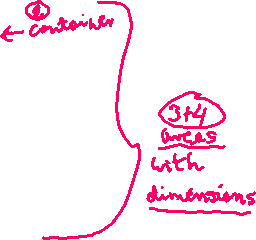 ← container
3+4
areas
with
dimensions